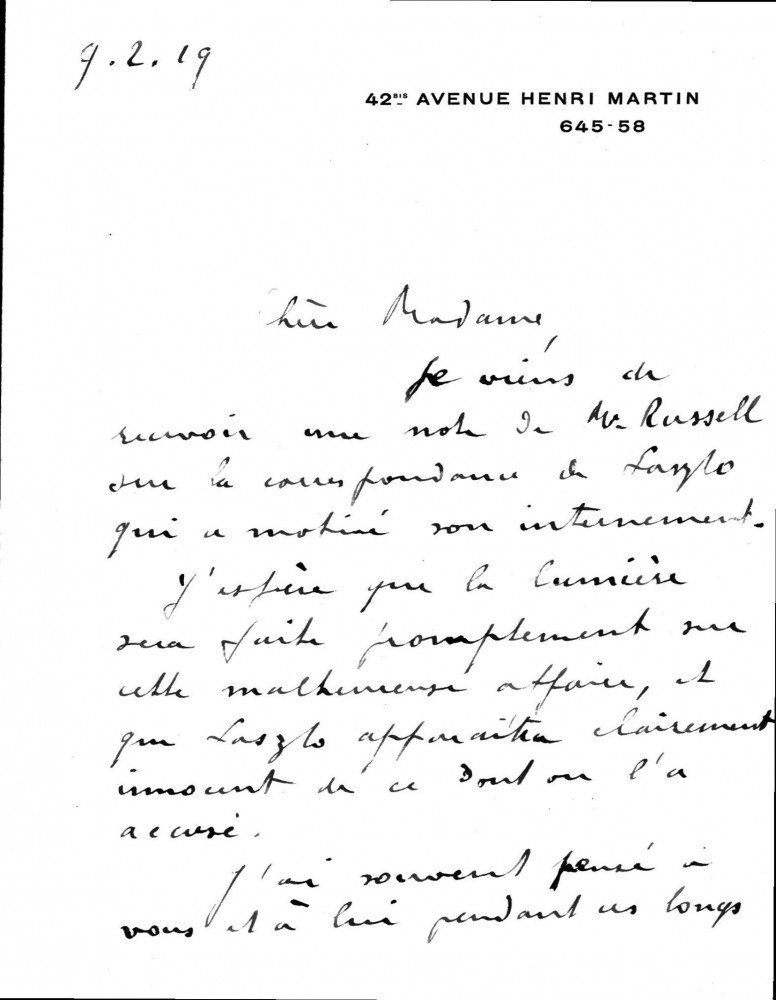 9.2.19
42BIS AVENUE HENRI MARTIN
645-58
Chère Madame,
Je viens de
recevoir une note de Mr Russell
sur la correspondance de Laszlo
qui a motivé son internement.
J'espère que la lumière
sera faite promptement sur
cette malheureuse affaire, et
que Laszlo apparaîtra clairement
innocent de ce dont on l'a
accusé.
J'ai souvent pensé à
vous et à lui pendant ces longs